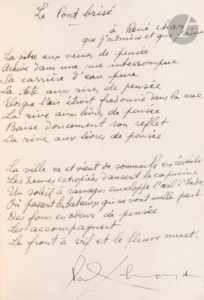 Le Pont brisé
à René Char
que j'admire et que j'aime
La vitre aux veines de pensée
Achève dans une rue interrompue
Sa carrière d'eau pure
La tête aux rives de pensée
l'air étroit fredonne dans la rue
La rive aux lèvres de pensée
Baisse doucement son reflet
La rive aux lèvres de pensée
La ville va et vient de sommeils en réveils
Les heures estropiées dansent la capucine
Un soleil à ramages enveloppe l'œil
Où passent bateaux qui ne vont nulle part
Des fous en odeur de pensée
Les accompagnent
Le front à vif et le fleuve muet.
Paul Eluard